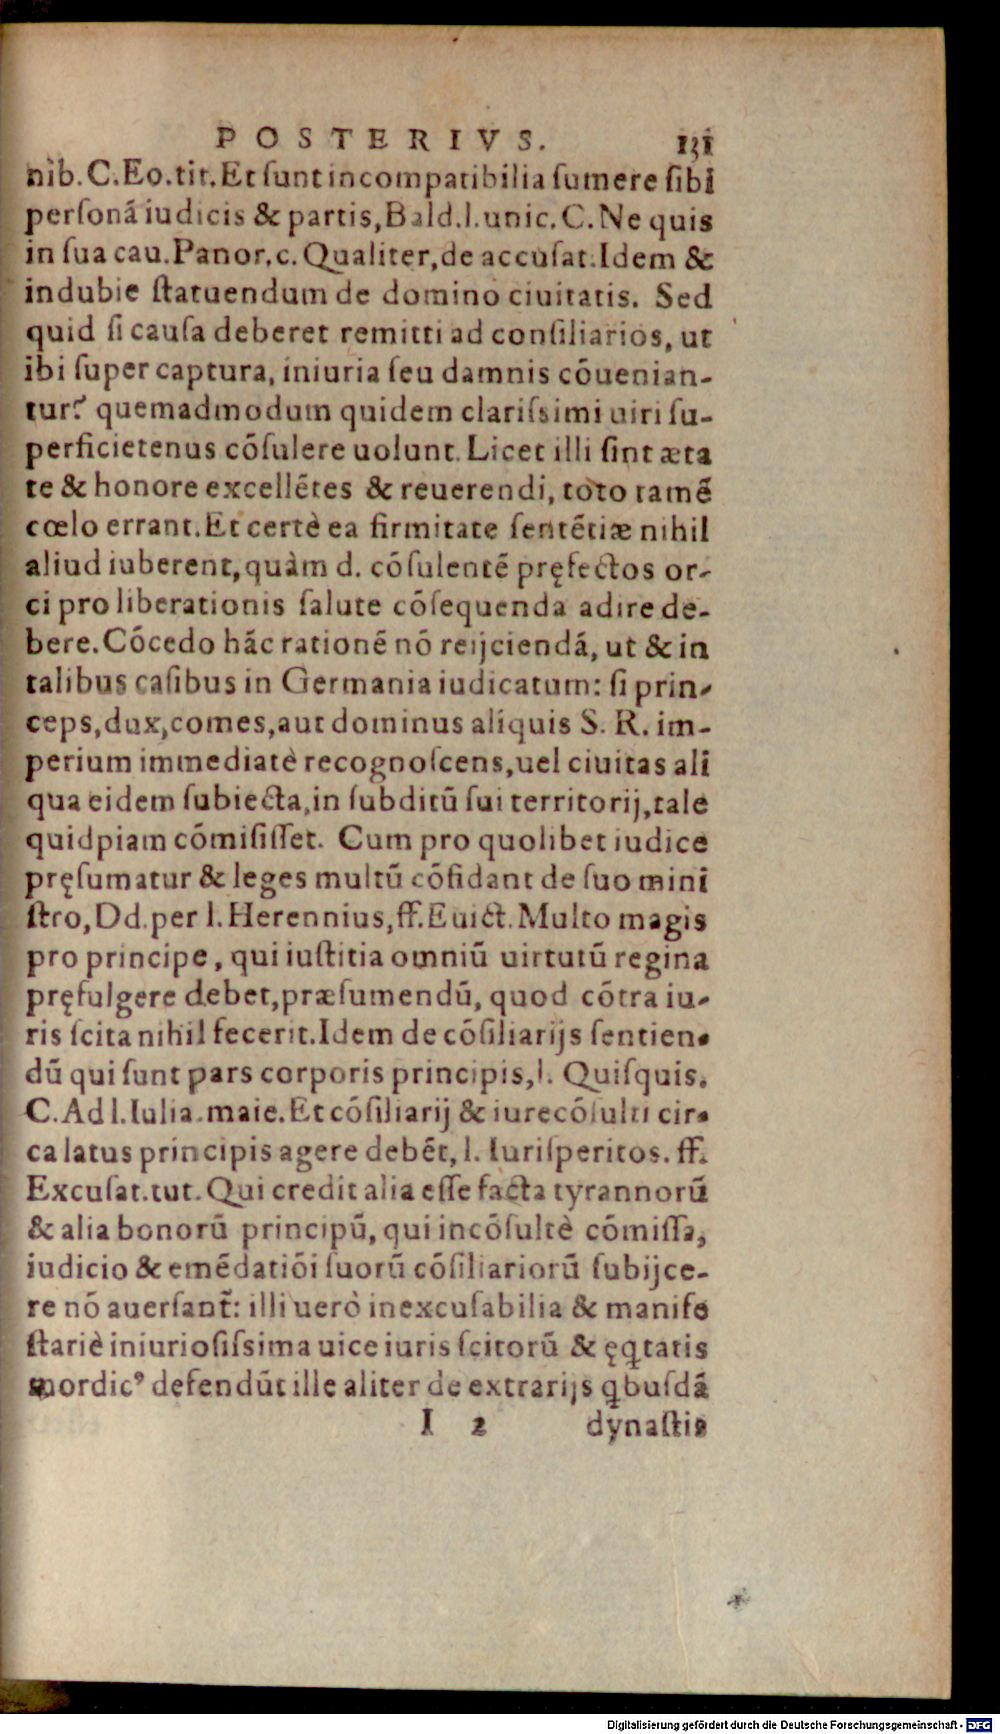 POSTERIVS. 131
nib. C. Eo. tit. Et ſunt incompatibilia ſumere ſibi
perſonã iudicis & partis, Bald. l. unic. C. Ne quis
in ſua cau. Panor. c. Qualiter, de accuſat. Idem &
indubie ſtatuendum de domino ciuitatis. Sed
quid ſi cauſa deberet remitti ad conſiliarios, ut
ibi ſuper captura, iniuria ſeu damnis cõuenian-
tur? quemadmodum quidem clariſsimi uiri ſu-
perficietenus cõſulere uolunt. Licet illi ſint æta
te & honore excellẽtes & reuerendi, toto tamẽ
cœlo errant. Et certè ea firmitate ſentẽtiæ nihil
aliud iuberent, quàm d. cõſulentẽ pręfectos or-
ci pro liberationis ſalute cõſequenda adire de-
bere. Cõcedo hãc rationẽ nõ reijciendã, ut & in
talibus caſibus in Germania iudicatum: ſi prin-
ceps, dux, comes, aut dominus aliquis S. R. im-
perium immediatè recognoſcens, uel ciuitas ali
qua eidem ſubiecta, in ſubditũ ſui territorij, tale
quidpiam cõmiſiſſet. Cum pro quolibet iudice
pręſumatur & leges multũ cõfidant de ſuo mini
ſtro, Dd. per l. Herennius, ff. Euict. Multo magis
pro principe, qui iuſtitia omniũ uirtutũ regina
pręfulgere debet, præſumendũ, quod cõtra iu-
ris ſcita nihil fecerit. Idem de cõſiliarijs ſentien-
dũ qui ſunt pars corporis principis, l. Quiſquis.
C. Ad l. Iulia. maie. Et cõſiliarij & iurecõſulti cir-
ca latus principis agere debẽt, l. Iuriſperitos. ff.
Excuſat. tut. Qui credit alia eſſe facta tyrannorũ
& alia bonorũ principũ, qui incõſultè cõmiſſa,
iudicio & emẽdatiõi ſuorũ cõſiliariorũ ſubijce-
re nõ auerſant̃: illi uerò inexcuſabilia & manife
ſtariè iniurioſiſsima uice iuris ſcitorũ & ęq̃tatis
mordicꝰ defendũt ille aliter de extrarijs q̃buſdã
I 2 dynaſtis
Digitalisierung gefördert durch die Deutsche Forschungsgemeinschaft - DFG